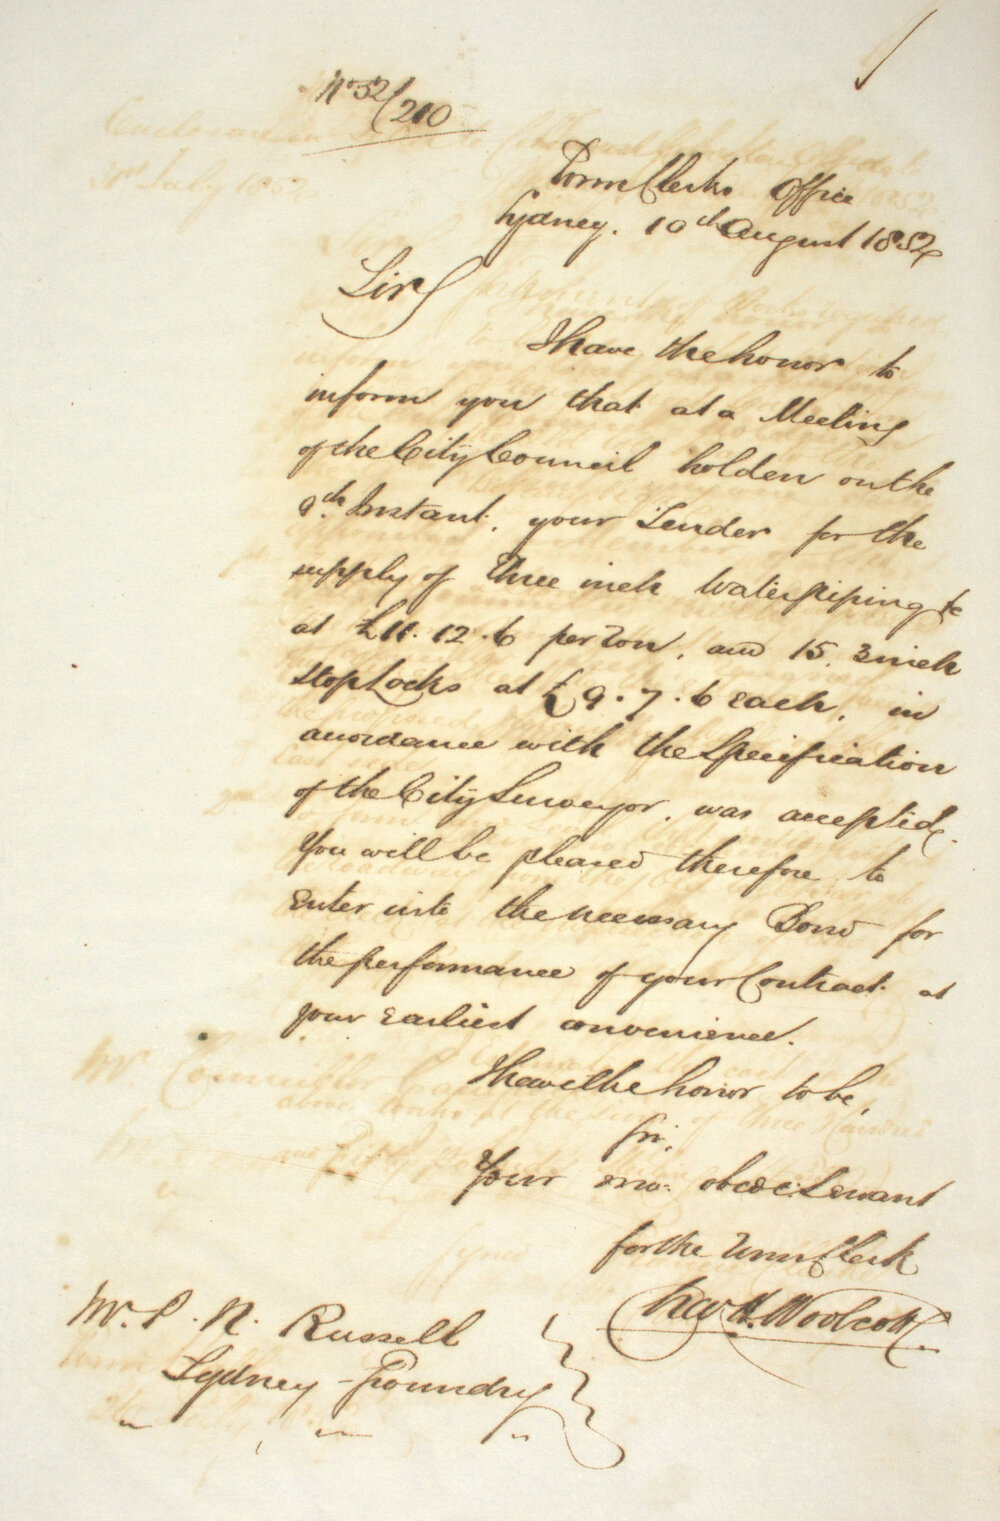 No 52/210
Town Clerks Office
Sydney. 10th August 1852
Sir
I have the honor to
inform you that at a Meeting
of the City Council holden on the
9th Instant, your Tender for the
supply of Three inch Water piping &c
at £11.12.6 per Ton, and 15. 3 inch
Stop Cocks at £9.7.6 each, in
accordance with the Specification
of the City Surveyor, was accepted.
You will be pleased therefore to
Enter into the necessary Bond for
the performance of your Contract at
your earliest convenience.
I have the honor to be,
Sir,
Your obedt Servant
for the Town Clerk
Chas H. Woolcott
Mr. P. N. Russell
Sydney Foundry